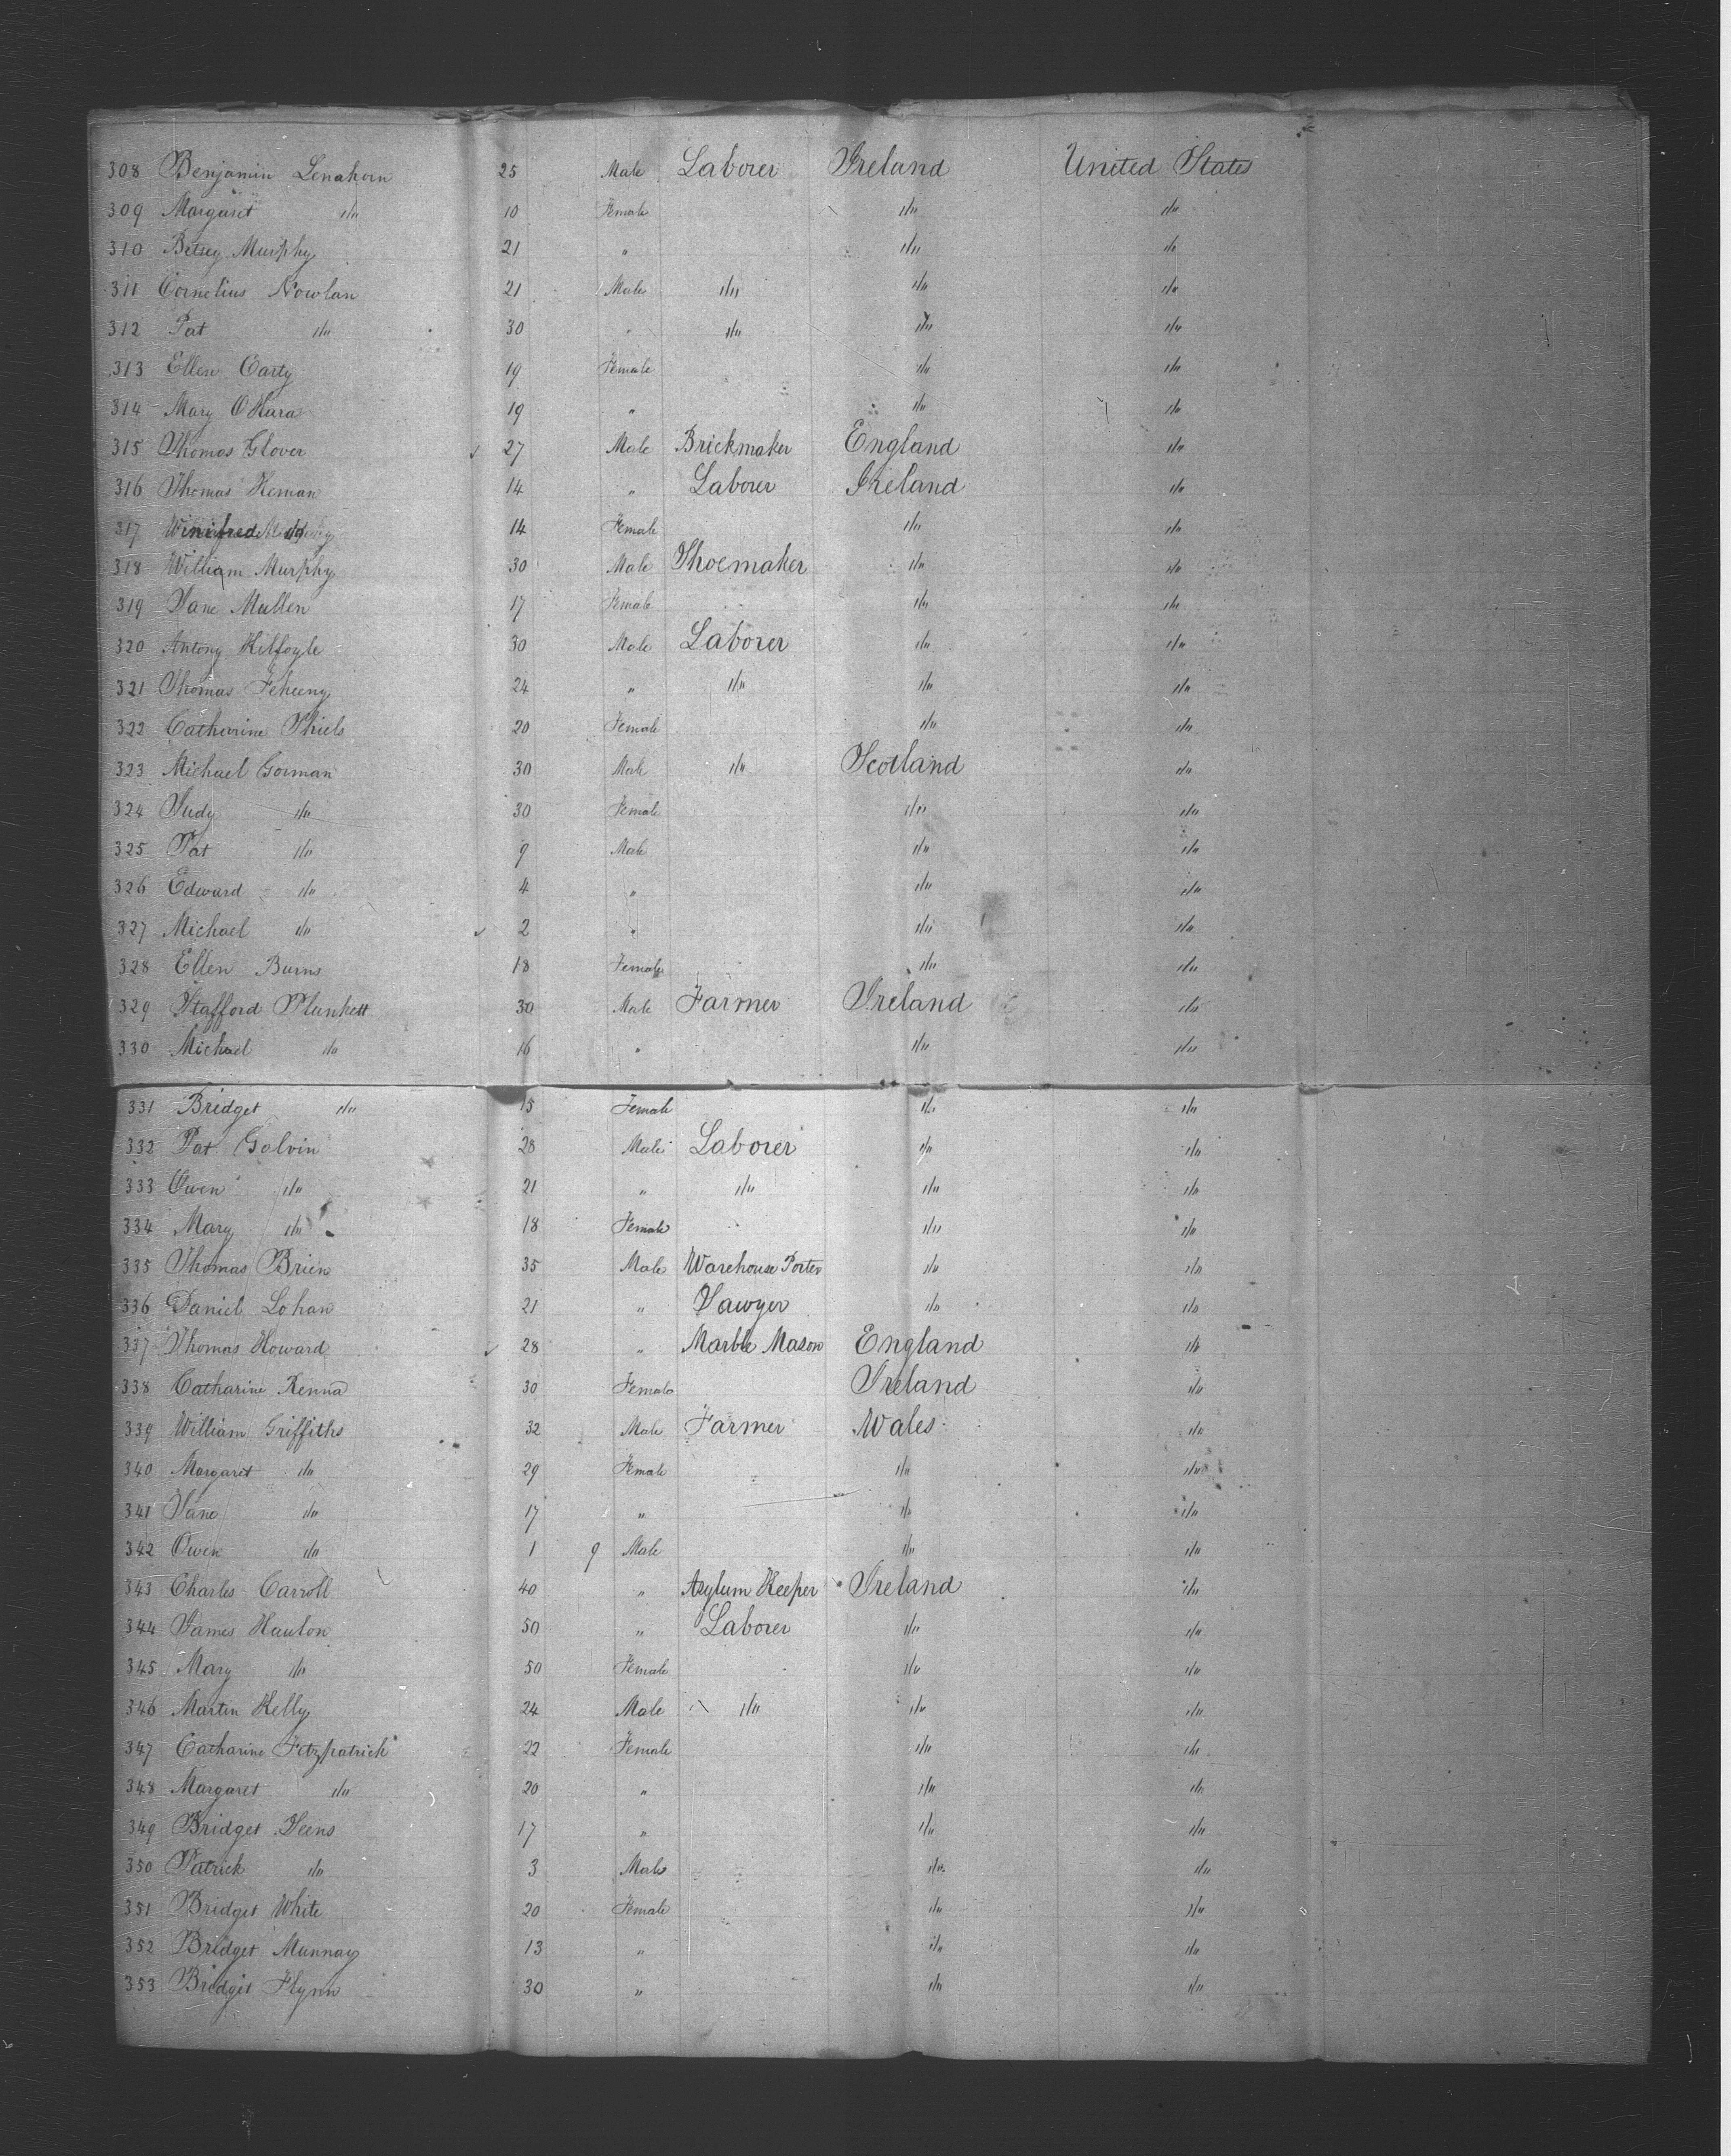 308 Benjamin Lenahorn 25 Male Laborer Ireland United States
309 Margaret "/" 10 Female "/" "/"
310 Betsey Murphy 21 " "/" "/"
311 Cornelius Nowlan 21 Male "/" "/" "/"
312 Pat "/" 30 " "/" "/" "/"
313 Ellen Carty 19 Female "/" "/"
314 Mary O'Hara 19 " "/" "/"
315 Thomas Glover 27 Male Brickmaker England "/"
316 Thomas Heman 14 " Laborer Ireland "/"
317 Winifred 14 Female "/" "/"
318 William Murphy 30 Male Shoemaker "/" "/"
319 Jane Mullen 17 Female "/" "/"
320 Antony Kilfoyle 30 Male Laborer "/" "/"
321 Thomas Feheeny 24 " "/" "/" "/"
322 Catherine Shiels 20 Female "/" "/"
323 Michael Gorman 30 Male "/" Scotland "/"
324 Judy "/" 30 Female "/" "/"
325 Pat "/" 9 Male "/" "/"
326 Edward "/" 4 " "/" "/"
327 Michael "/" 2 " "/" "/"
328 Ellen Burns 18 Female "/" "/"
329 Stafford Plunkett 30 Male Farmer Ireland "/"
330 Michael "/" 16 " "/" "/"
331 Bridget "/" 15 Female "/" "/"
332 Pat Galvin 28 Male Laborer "/" "/"
333 Owen "/" 21 " "/" "/" "/"
334 Mary "/" 18 Female "/" "/"
335 Thomas Brien 35 Male Warehouse Porter "/" "/"
336 Daniel Lohan 21 " Sawyer "/" "/"
337 Thomas Howard 28 " Marble Mason England "/"
338 Catharine Kenna 30 Female Ireland "/"
339 William Griffiths 32 Male Farmer Wales "/"
340 Margaret "/" 29 Female "/" "/"
341 Jane "/" 17 " "/" "/"
342 Owen "/" 1 9 Male "/" "/"
343 Charles Carroll 40 " Asylum Keeper Ireland "/"
344 James Hanlon 50 " Laborer "/" "/"
345 Mary "/" 50 Female "/" "/"
346 Martin Kelly 24 Male "/" "/" "/"
347 Catharine Fitzpatrick 22 Female "/" "/"
348 Margaret "/" 20 " "/" "/"
349 Bridget 17 " "/" "/"
350 Patrick "/" 3 Male "/" "/"
351 Bridget White 20 Female "/" "/"
352 Bridget Munnay 13 " "/" "/"
353 Bridget Flynn 30 " "/" "/"